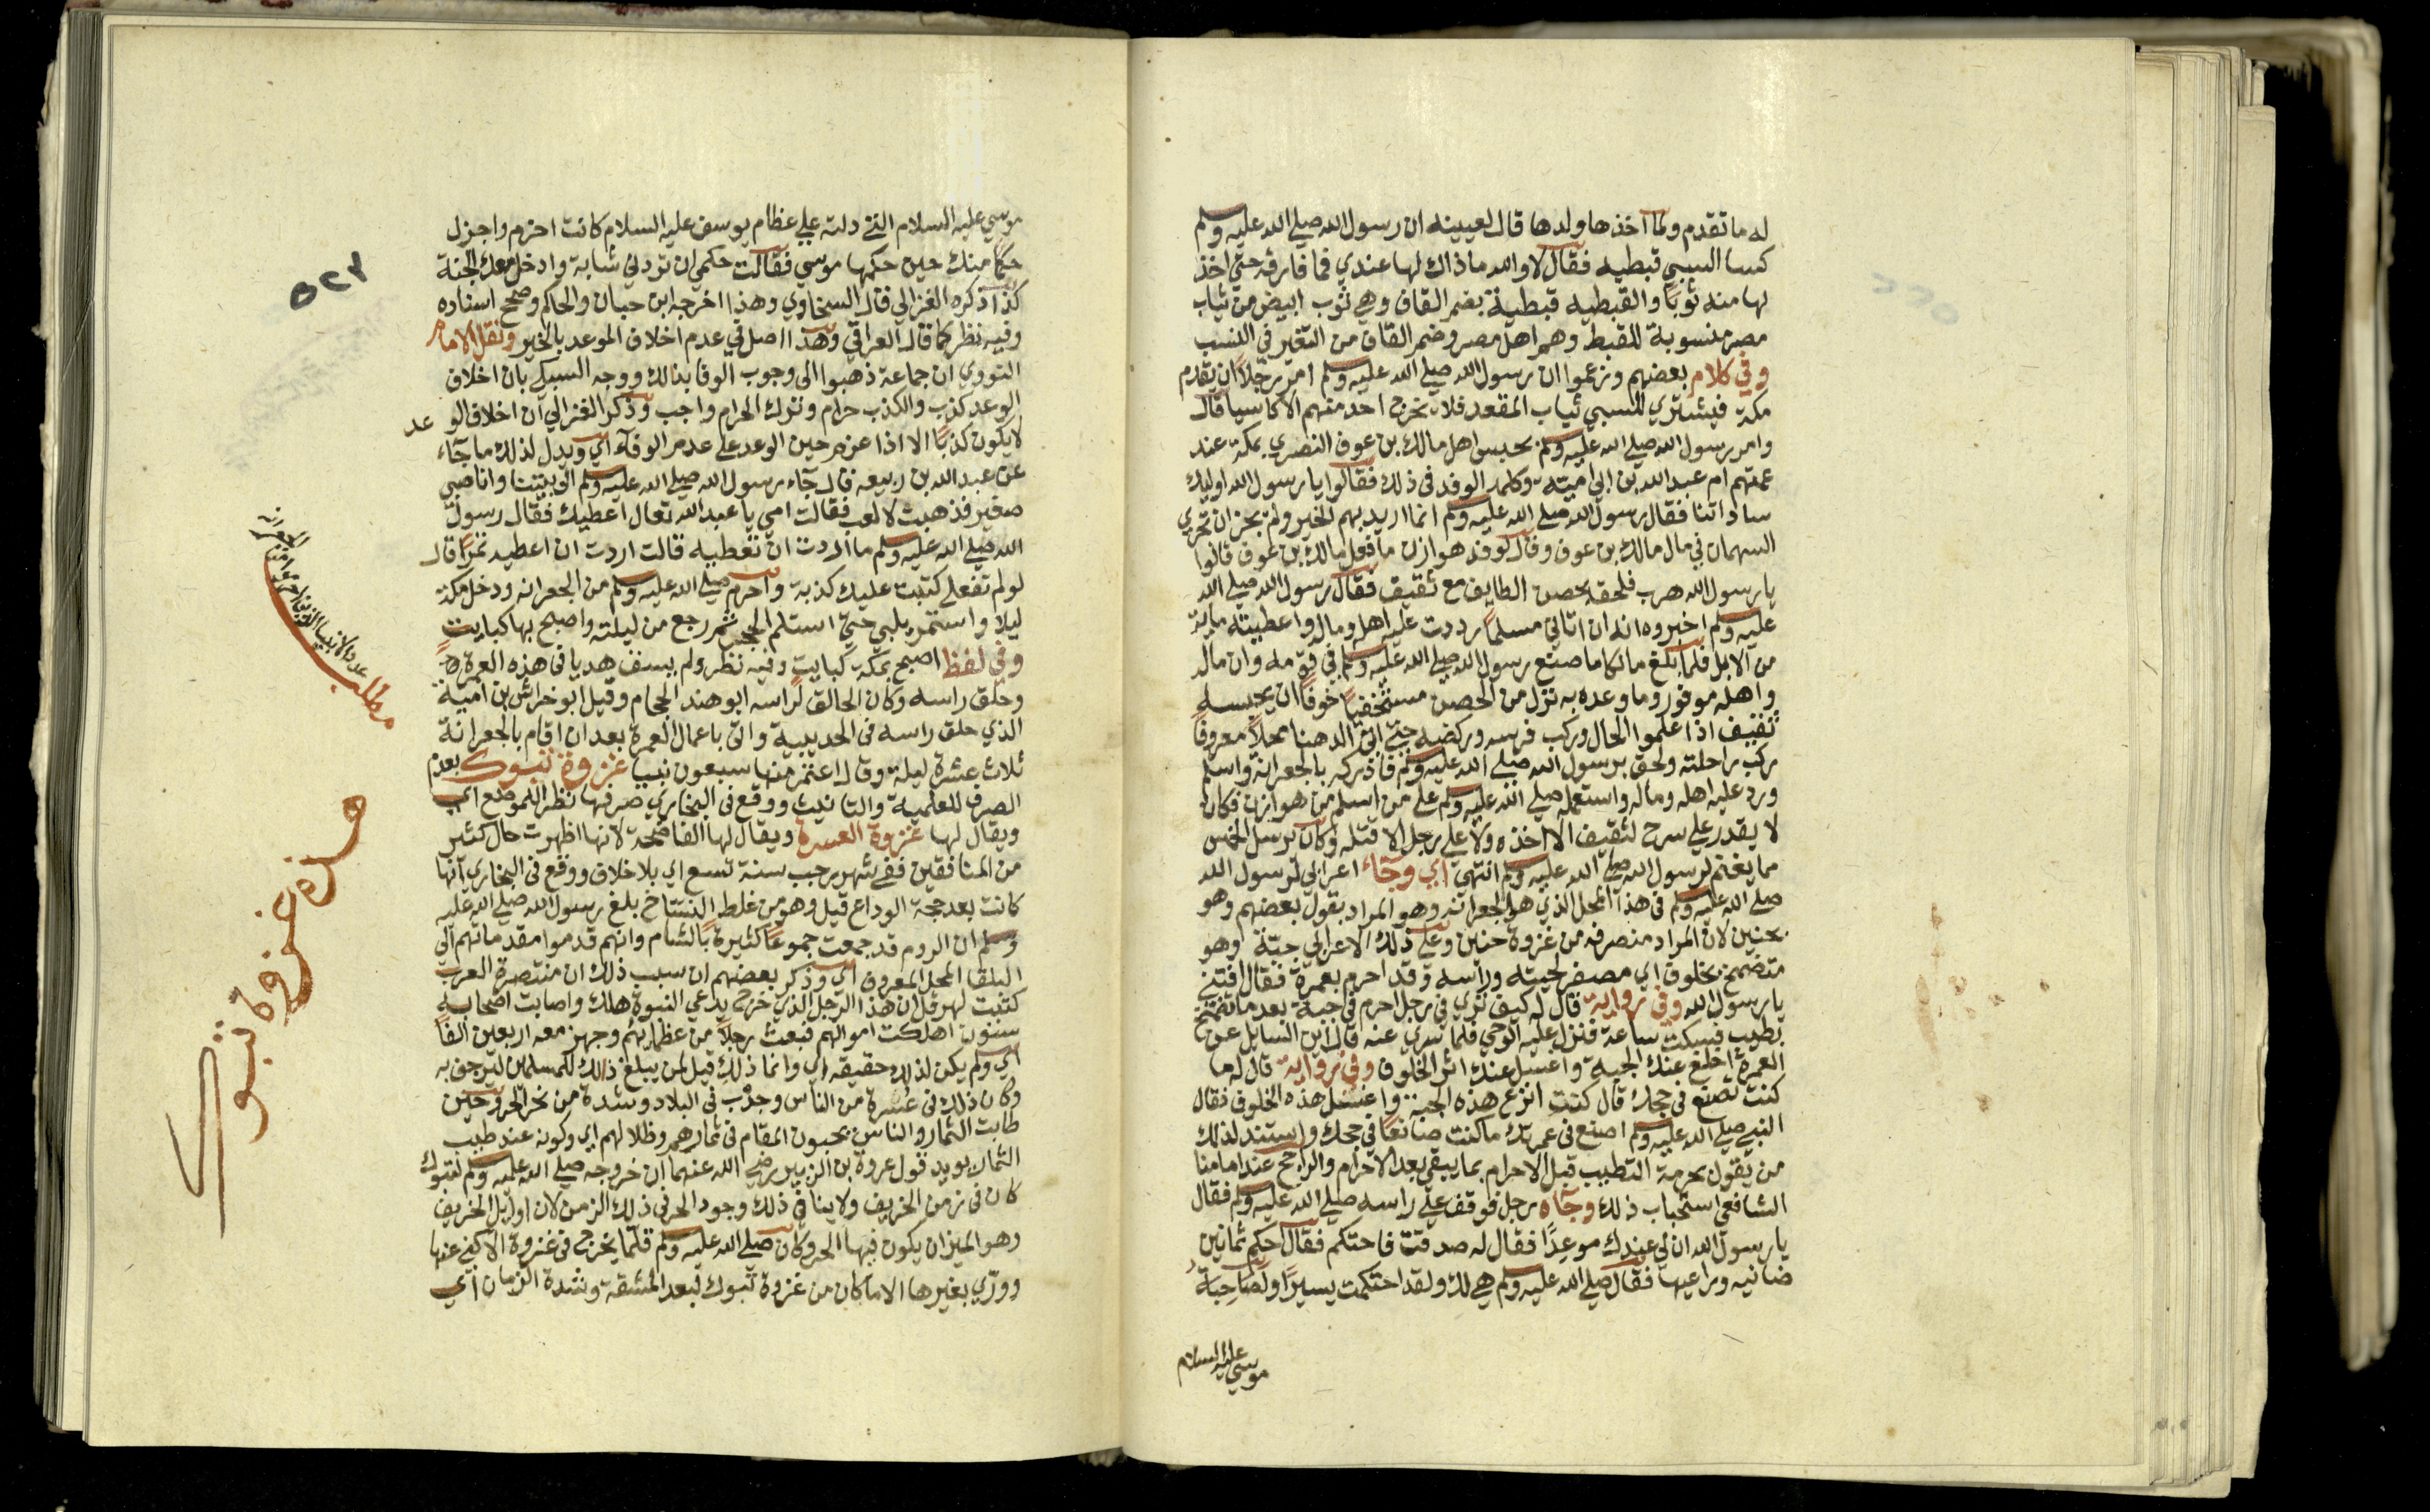 له ما تقدم ولما اخذها ولدها قال لعيينه ان رسول الله صلي الله عليه وسلم
كسا السبي قبطيه فقال لا والله ما ذاك لها عندي فما فارقه حتي اخذ
لها منه ثوبا والقبطيه قبطية بضم القاف وهي ثوب ابيض من ثياب
مصر منسوبة للقبط وهم اهل مصر وضم القاف من التغير في النسب
وفي كلام بعضهم وزعموا ان رسول الله صلي الله عليه وسلم امر رجلا ان يقدم
مكة فيشتري للسبي ثياب المقعد فلا يخرج احد منهم الا كاسيا قال
وامر رسول الله صلي الله عليه وسلم بحبس اهل مالك بن عوف النصري بمكة عند
عمتهم ام عبد الله بن ابي امية وكلمه الوفد في ذلك فقالوا يا رسول الله اوليك
ساداتنا فقال رسول الله صلي الله عليه وسلم انما اريد بهم الخير ولم يجز ان تجري
السهمان في مال مالك بن عوف وقال لوفد هوازن ما فعل مالك بن عوف قالوا
يا رسول الله هرب فلحق بحصن الطايف مع ثقيف فقال رسول الله صلي الله
عليه وسلم اخبروه انه ان اتاني مسلما رددت عليه اهله وماله واعطيته ماية
من الابل فلما بلغ مالكا ما صنع رسول الله صلي الله عليه وسلم في قومه وان ماله
واهله موفور وما وعده به نزل من الحصن مستخفيا خوفا ان يحبسه
ثقيف اذا علموا الحال وركب فرسه وركضه حتي اتي الدهنا محلا معروفا
ركب راحلته ولحق برسول الله صلي الله عليه وسلم فادركه بالجعرانة واسلم
ورد عليه اهله وماله واستعمله صلي الله عليه وسلم علي من اسلم من هوازن فكان
لا يقدر علي سرح لثقيف الا اخذه ولا علي رجل الا قتله وكان يرسل الخمس
مما يغنم لرسول الله صلي الله عليه وسلم انتهي اي وجاء اعرابي لرسول الله
صلي الله عليه وسلم في هذا المحل الذي هو الجعرانة وهو المراد بقول بعضهم وهو
بحنين لان المراد منصرفه من غزوة حنين وعلي ذلك الاعرابي جبة وهو
متضمخ بخلوق اي مصفر لحيته وراسه وقد احرم بعمرة فقال افتني
يا رسول الله وفي رواية قال له كيف تري في رجل احرم في جبة بعد ما تضمخ
بطيب فسكت ساعة فنزل عليه الوحي فلما سري عنه قال اين السايل عن
العمرة اخلع عنك الجبة واغسل عنك اثر الخلوق وفي رواية قال له ما
كنت تصنع في حجك قال كنت انزع هذه الجبة واغسل هذه الخلوق فقال
النبي صلي الله عليه وسلم اصنع في عمرتك ما كنت صانعا في حجك واستند لذلك
من يقول بحرمة التطيب قبل الاحرام بما يبقي بعد الاحرام والراجح عند امامنا
الشافعي استحباب ذلك وجاه رجل فوقف علي راسه صلي الله عليه وسلم فقال
يا رسول الله ان لي عندك موعدا فقال له صدقت فاحتكم فقال احكم ثمانين
ضانيه وراعيها فقال صلي الله عليه وسلم هي لك ولقد احتكمت يسيرا ولصاحبة
موسي عليه السلام
٥٢٢
موسي عليه السلام التي دلته علي عظام يوسف عليه السلام كانت احزم واجزل
حكما منك حين حكمها موسي فقالت حكمي ان تردني شابة وادخل معك الجنة
كذا ذكره الغزالي قال السخاوي وهذا اخرجه ابن حبان والحاكم وصحح اسناده
وفيه نظر كما قال العراقي وهذا اصل في عدم اخلاف الموعد بالخير ونقل الامام
النووي ان جماعة ذهبوا الي وجوب الوفا بذلك ووجه السبكي بان اخلاف
الوعد كذب والكذب حرام وترك الحرام واجب وذكر الغزالي ان اخلاف الوعد
لا يكون كذبا الا اذا عزم حين الوعد علي عدم الوفاء اي ويدل لذلك ما جاء
عن عبد الله بن ربيعه قال جاء رسول الله صلي الله عليه وسلم الي بيتنا وانا صبي
صغير فذهبت لالعب فقالت امي يا عبد الله تعال اعطيك فقال رسول
الله صلي الله عليه وسلم ما اردت ان تعطيه قالت اردت ان اعطيه تمرا قال
لو لم تفعلي كتبت عليك كذبة واحرم صلي الله عليه وسلم من الجعرانه ودخل مكة
ليلا واستمر يلبي حتي استلم الحجر ثم رجع من ليلته واصبح بها كبايت
وفي لفظ اصبح بمكة كبايت وفيه نظر ولم يسق هديا في هذه العمرة
وحلق راسه وكان الحالق لراسه ابو هند الحجام وقيل ابو خراش بن امية
الذي حلق راسه في الحديبية واتي باعمال العمرة بعد ان اقام بالجعرانة
ثلاث عشرة ليلة وقال اعتمر منها سبعون نبيا غزوة تبوك بعدم
الصرف للعلمية والتانيث ووقع في البخاري صرفها نظرا للموضع اي
ويقال لها غزوة العسرة ويقال لها الفاضحة لانها اظهرت حال كثير
من المنافقين ففي شهر رجب سنة تسع اي بلا خلاف ووقع في البخاري انها
كانت بعد حجة الوداع قيل وهو من غلط النساخ بلغ رسول الله صلي الله عليه
وسلم ان الروم قد جمعت جموعا كثيرة بالشام وانهم قدموا مقدماتهم الي
البلقا المحل المعروف اي وذكر بعضهم ان سبب ذلك ان منتصرة العرب
كتبت لهرقل ان هذا الرجل الذي خرج يدعي النبوة هلك واصابت اصحابه
سنون اهلكت اموالهم فبعث رجلا من عظمايهم وجهز معه اربعين الفا
اي ولم يكن لذلك حقيقة اي وانما ذلك قيل لمن يبلغ ذلك للمسلمين ليرجف به
وكان ذلك في عسرة من الناس وجدب في البلاد وشدة من نحر الحر وحين
طابت الثمار والناس يحبون المقام في ثمارهم وظلالهم اي وكونه عند طيب
الثمار يويد قول عروة بن الزبير رضي الله عنهما ان خروجه صلي الله عليه وسلم لتبوك
كان في زمن الخريف ولا ينافي ذلك وجود الحر في ذلك الزمن لان اوايل الخريف
وهو الميزان يكون فيها الحر وكان صلي الله عليه وسلم قلما يخرج في غزوة الا كني عنها
ووري بغيرها الا ما كان من غزوة تبوك لبعد المشقة وشدة الزمان اي
مطلب
عدد الانبيا الذين احرموا من الجعرانه
هذه غزوة تبوك